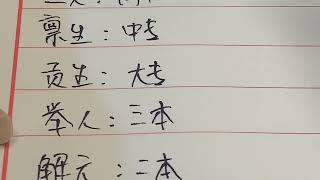 禀生：中专
贡生：大专
举人：三本
解元：二本